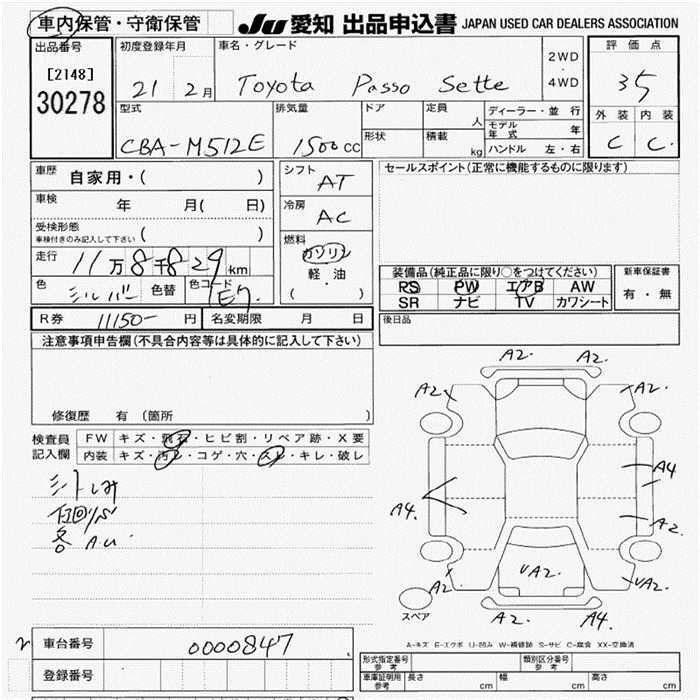 車内保管・守衛保管
JU 愛知 出品申込書 JAPAN USED CAR DEALERS ASSOCIATION
出品番号
[2148]
30278
初度登録年月
21 2月
車名・グレード
Toyota Passo Sette
2WD
・
4WD
評価点
35
外装 内装
C C
型式
CBA-M512E
排気量
1500cc
ドア
形状
定員
人
積載
kg
ディーラー・並行
モデル年式 年
ハンドル 左・右
車歴 自家用・( )
車検 年 月( 日)
受検形態
車検付きのみ記入して下さい ( )
走行 11万8千829km
色 シルバー 色替 色コード E7
シフト AT
冷房 AC
燃料
ガソリン
軽・油
( )
セールスポイント(正常に機能するものに限ります)
装備品(純正品に限り○をつけてください)
RS PW エアB AW
SR ナビ TV カワシート
新車保証書
有・無
R券 11150- 円 名変期限 月 日
後日品
注意事項申告欄(不具合内容等は具体的に記入して下さい)
修復歴 有 (箇所 )
検査員記入欄
FW キズ・飛石・ヒビ割・リペア跡・X要
内装 キズ・汚レ・コゲ・穴・スレ・キレ・破レ
シートしみ
A2. A2.
A2 A2.
A4. A4
A2.
A2. √A2. √A2.
A2. A4.
スペア
A-キズ E-エクボ U-凹み W-補修跡 S-サビ C-腐食 XX-交換済
車台番号 0000847
登録番号
形式指定番号 参考 類別区分番号 参考
車庫証明用 参考 長さ cm 幅 cm 高さ cm